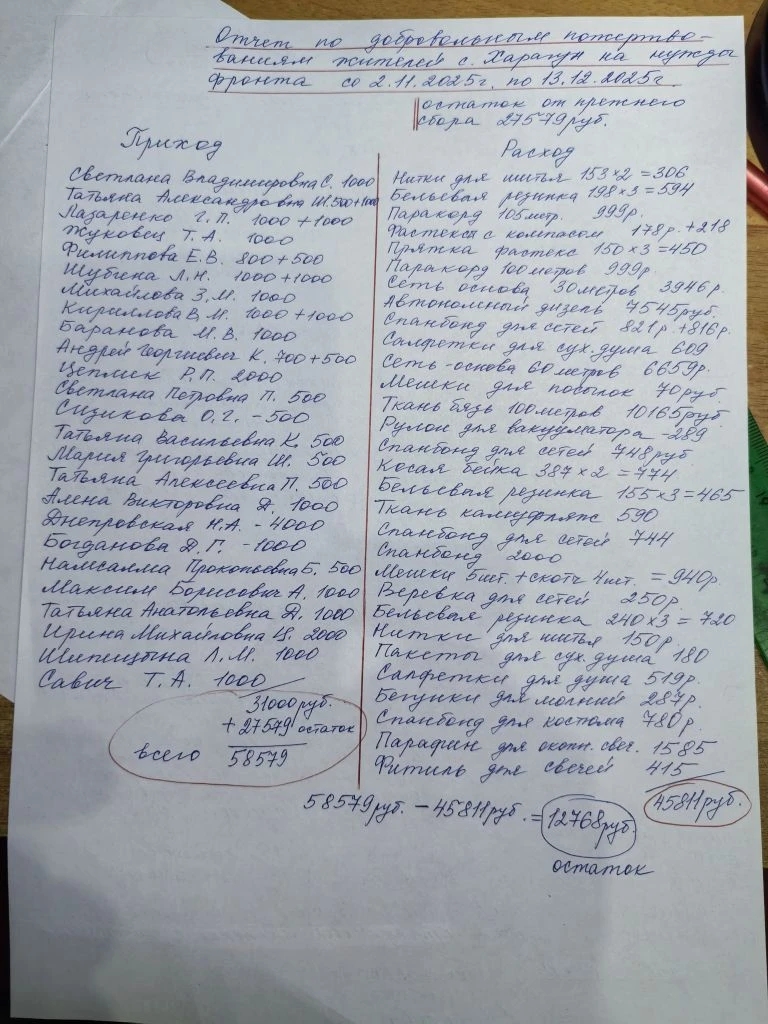 Отчет по добровольным пожертво-
ваниям жителей с. Харагун на нужды
фронта со 2.11.2025г. по 13.12.2025г.
остаток от прежнего
сбора 27579руб.
Приход
Светлана Владимировна С. 1000
Татьяна Александровна Ш. 500+1000
Лазаренко Г.П. 1000+1000
Жуковец Т.А. 1000
Филиппова Е.В. 800+500
Шубина Л.Н. 1000+1000
Михайлова З.М. 1000
Кириллова В.М. 1000+1000
Баранова М.В. 1000
Андрей Георгиевич К. 700+500
Цепмск Р.П. 2000
Светлана Петровна П. 500
Сизикова О.Г. -500
Татьяна Васильевна К. 500
Мария Григорьевна Ш. 500
Татьяна Алексеевна П. 500
Алена Викторовна Д. 1000
Днепровская Н.А. -4000
Богданова Д.Г. -1000
Намсалма Прокопьевна Б. 500
Максим Борисович А. 1000
Татьяна Анатольевна Д. 1000
Ирина Михайловна Ц. 2000
Шипицына Л.М. 1000
Савич Т.А. 1000
31000руб.
+27579 остаток
всего 58579
Расход
Нитки для шитья 153×2=306
Бельевая резинка 198×3=594
Паракорд 105метр. 999р.
Фастекс с компасом 178р.+218
Пряжка фастекс 150×3=450
Паракорд 100метров 999р.
Сеть основа 30метров 3946р.
Автономный дизель 7545руб.
Спанбонд для сетей 821р.+816р.
Салфетки для сух.душа 609
Сеть-основа 60метров 6659р.
Мешки для посылок 70руб.
Ткань бязь 100метров 10165руб
Рулон для вакууматора -289
Спанбонд для сетей 748руб
Косая бейка 387×2=774
Бельевая резинка 155×3=465
Ткань камуфляж 590
Спанбонд для сетей 744
Спанбонд 2000
Мешки 5шт.+скотч 4шт. =940р.
Веревка для сетей 250р.
Бельевая резинка 240×3=720
Нитки для шитья 150р.
Пакеты для сух.душа 180
Салфетки для душа 519р.
Бегунки для молний 287р.
Спанбонд для костюма 780р.
Парафин для окопн. свеч. 1585
Фитиль для свечей 415
45811руб.
58579руб. - 45811руб. = 12768руб.
остаток